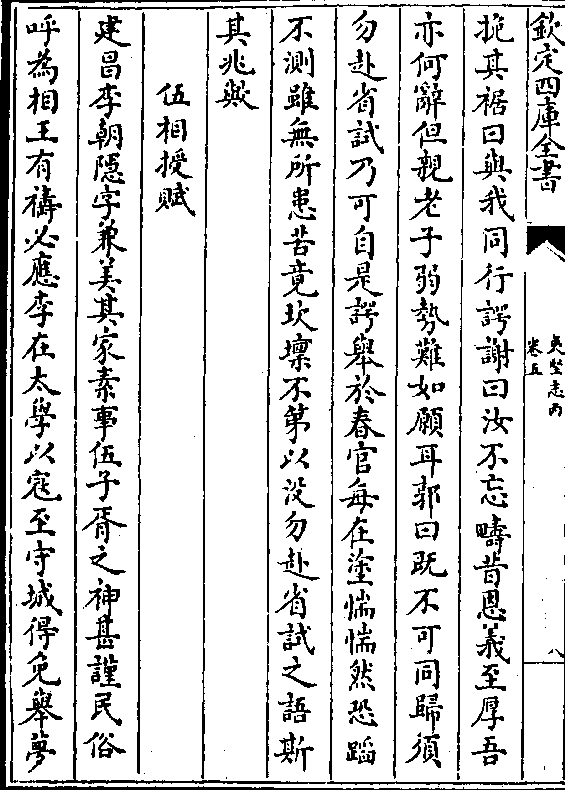 欽定四庫全書
夷堅志丙
卷五
八
挽其裾曰與我同行諤謝曰汝不忘疇昔恩義至厚吾
亦何辭但親老子弱勢難如願耳郭曰既不可同歸須
勿赴省試乃可自是諤舉於春官每在塗惴惴然恐蹈
不測雖無所患苦竟坎壈不第以没勿赴省試之語斯
其兆歟
伍相授賦
建昌李朝隱字兼美其家素事伍子胥之神甚謹民俗
呼為相王有禱必應李在太學以寇至守城得免舉夢